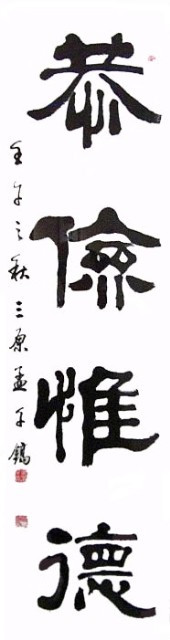 恭儉惟德
壬午之秋三原孟子鎬